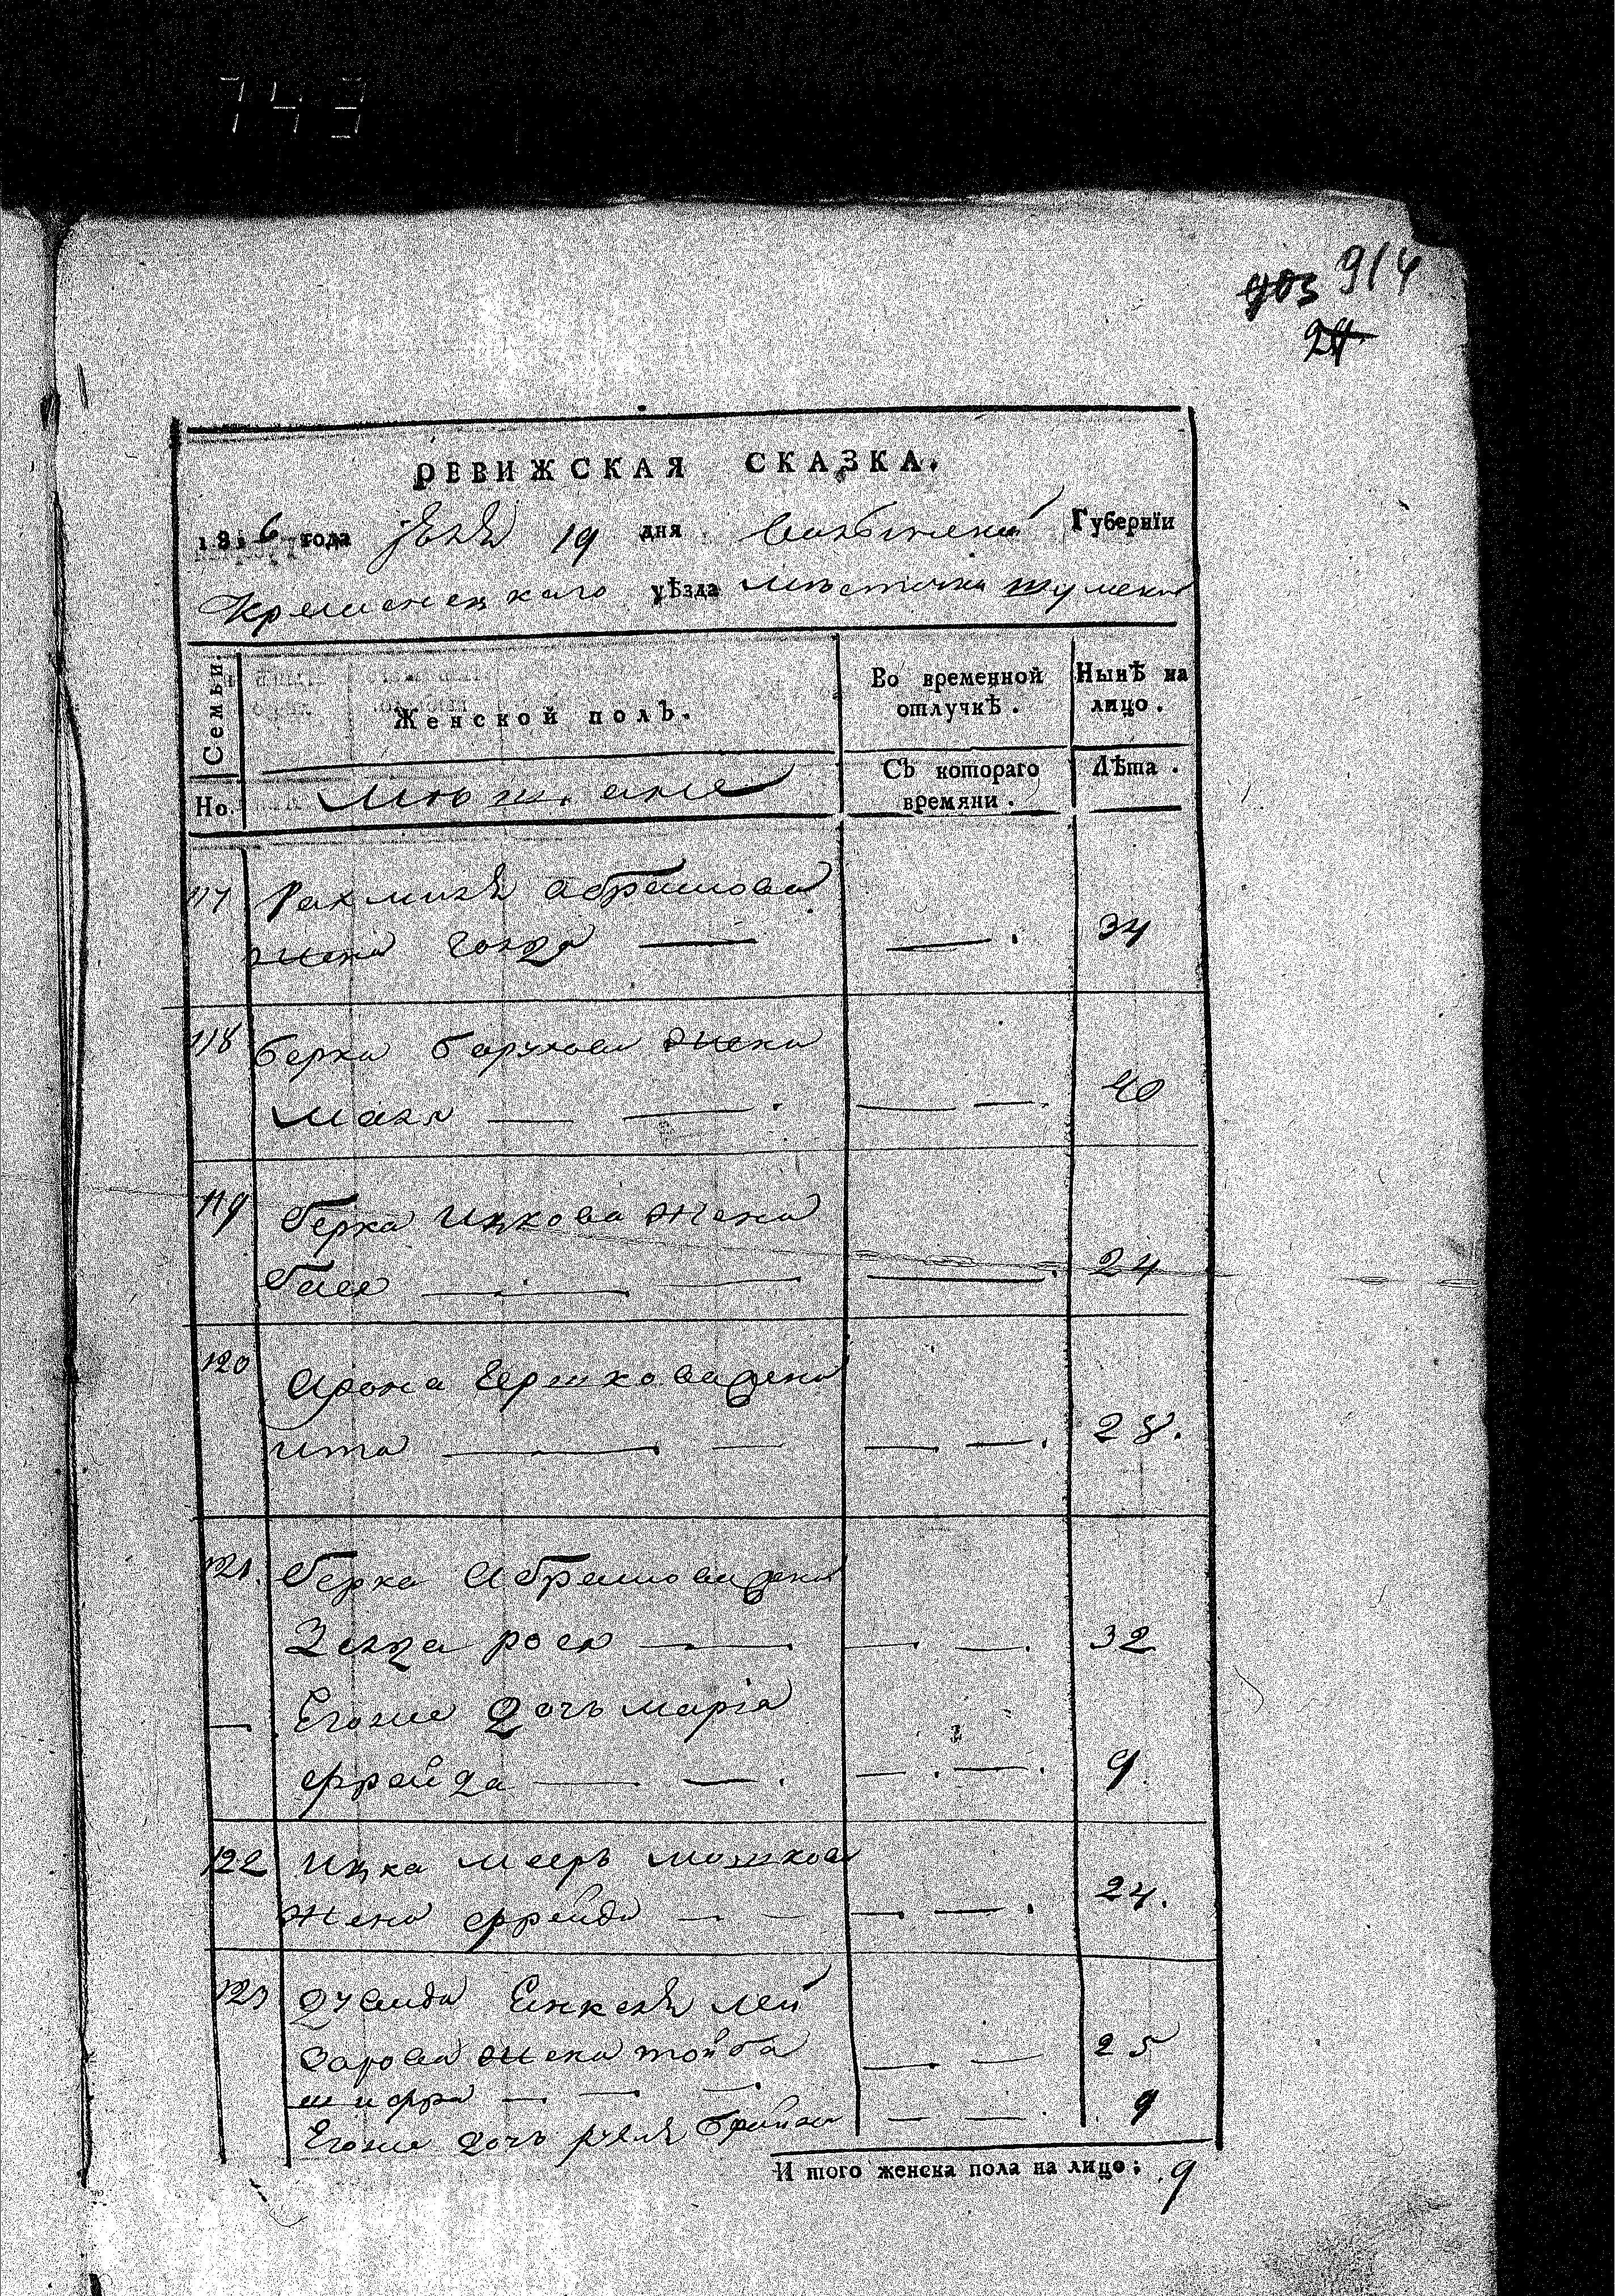 743
903 914
24
РЕВИЖСКАЯ СКАЗКА.
1816 года Июня 19 дня Волынской Губернїи
Кременецкаго уѣзда местечка Шумска
Семьи.
Женской полъ.
Во временной отлучкѣ.
Нынѣ на лицо.
Но.
Мещане
Съ котораго времяни.
Лѣта.
117 Рахмиля Абрамова
жена Голда — — 34
118 Берка Барухова жена
Маля — — 40
119 Берка Ицкова жена
Бася — — 24
120 Арона Гершкова жена
Ита — — 28.
121. Берка Абрамова жена
Зелда рося — — 32
— Егоже дочь марїя
фрейда — — 9
122 Ицка Меерь мошкова
жена фрейда — — 24.
123
жена тойба — — 25
шифра — —
Егоже дочь — — 9
И того женска пола на лицо: 9